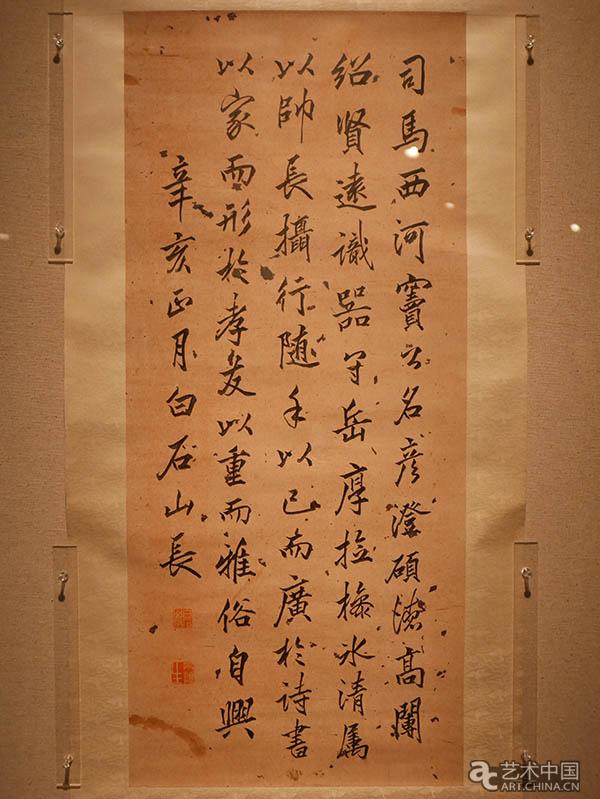 司馬西河竇公名彦澄碩德高闡
紹賢遠識器宇岳厚招檢冰清属
以帥長攝行随手以已而廣於诗書
以家而形於孝友以重而雅俗自興
辛亥正月白石山長
艺术中国
ART.CHINA.CN